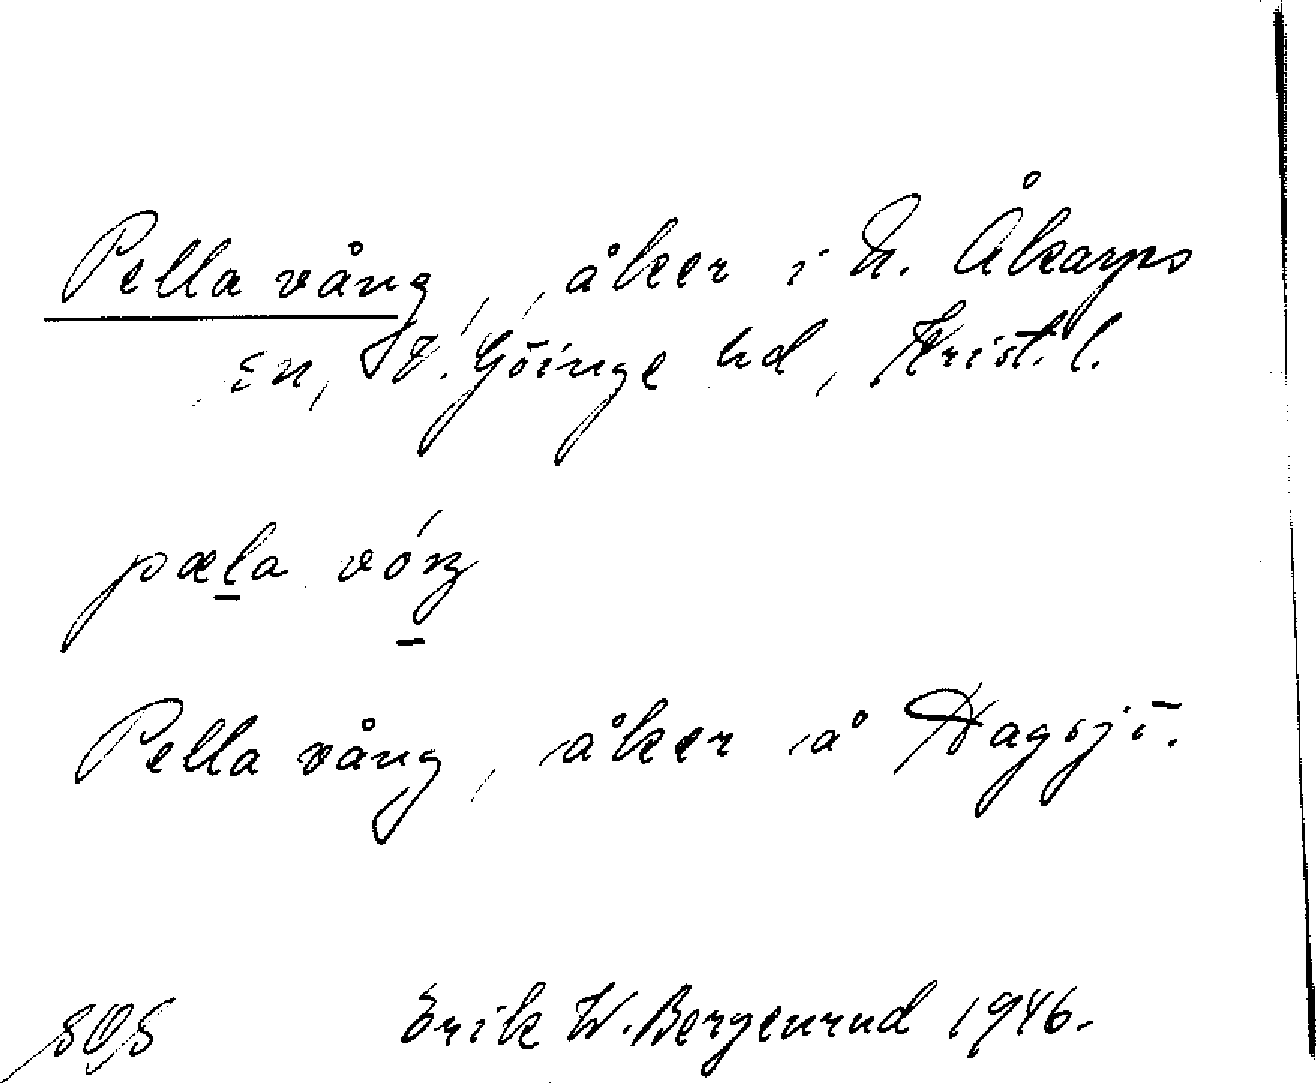 Pella vång, åker i N. Åkarps
sn, V. Göinge hd, Krist. l.
pæla vóŋ
Pella vång, åker å Hagsjö.
SOS Erik W. Bergenrud 1946.